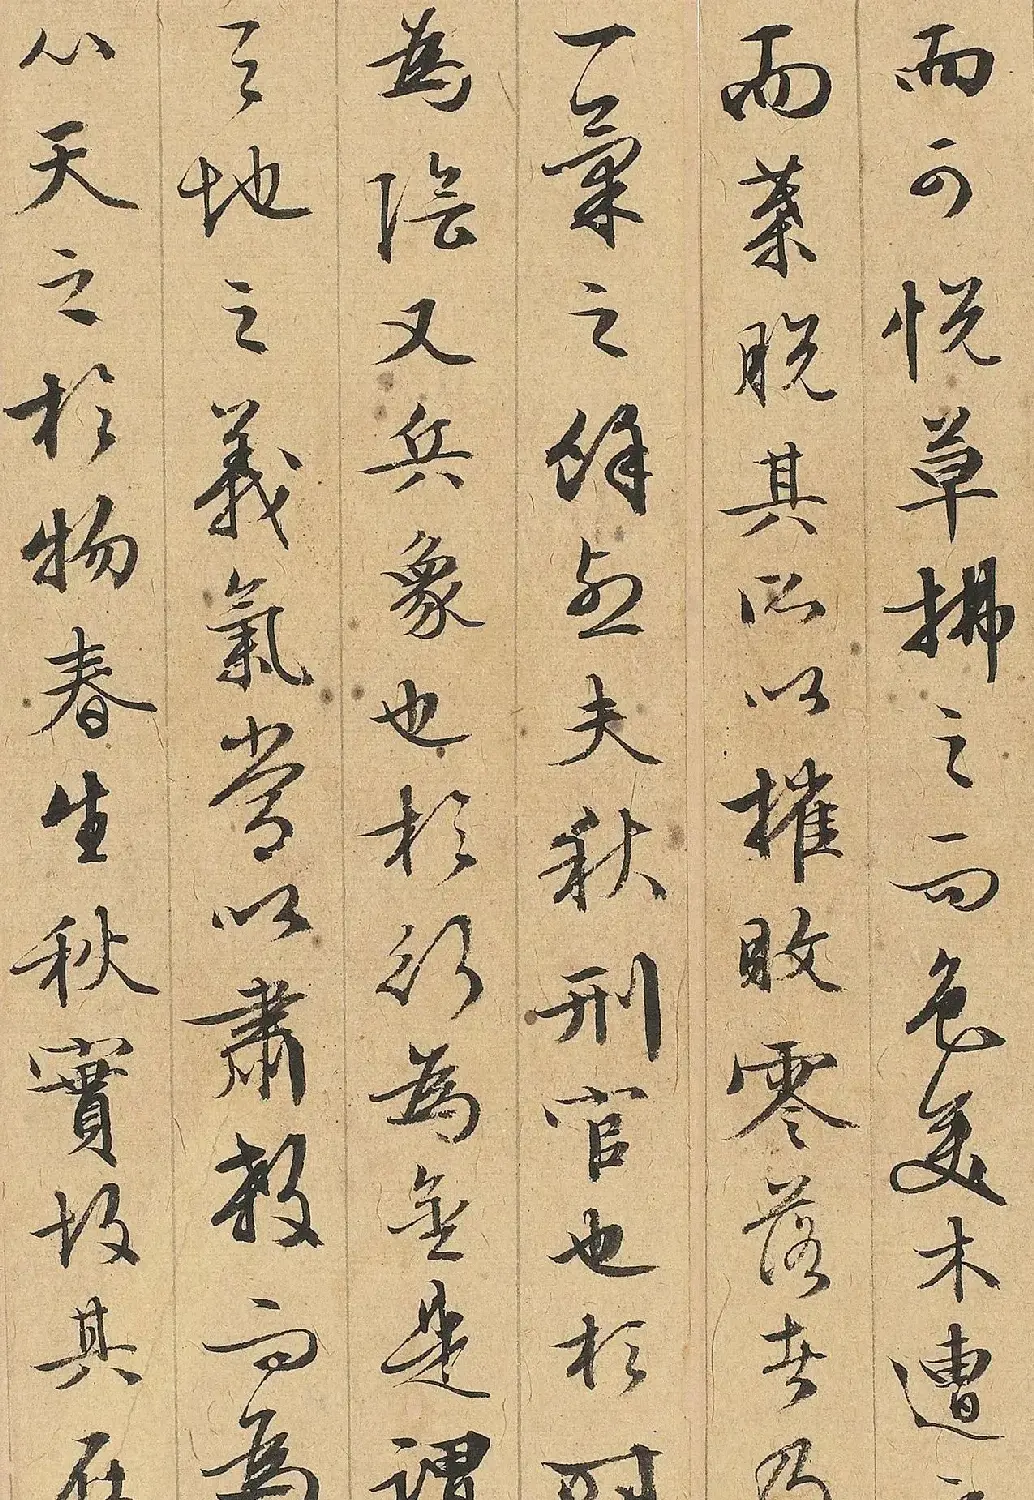 而可悅草拂之而色變木遭之
而葉脫其所以摧敗零落者乃
一氣之餘烈夫秋刑官也於時
為陰又兵象也於行為金是謂
之地之義氣常以肅殺而為
心天之於物春生秋實故其在